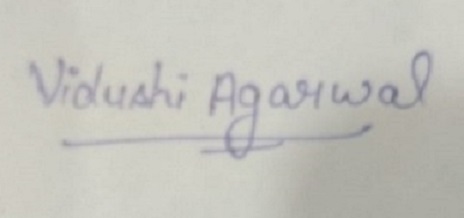 Vidushi Agarwal